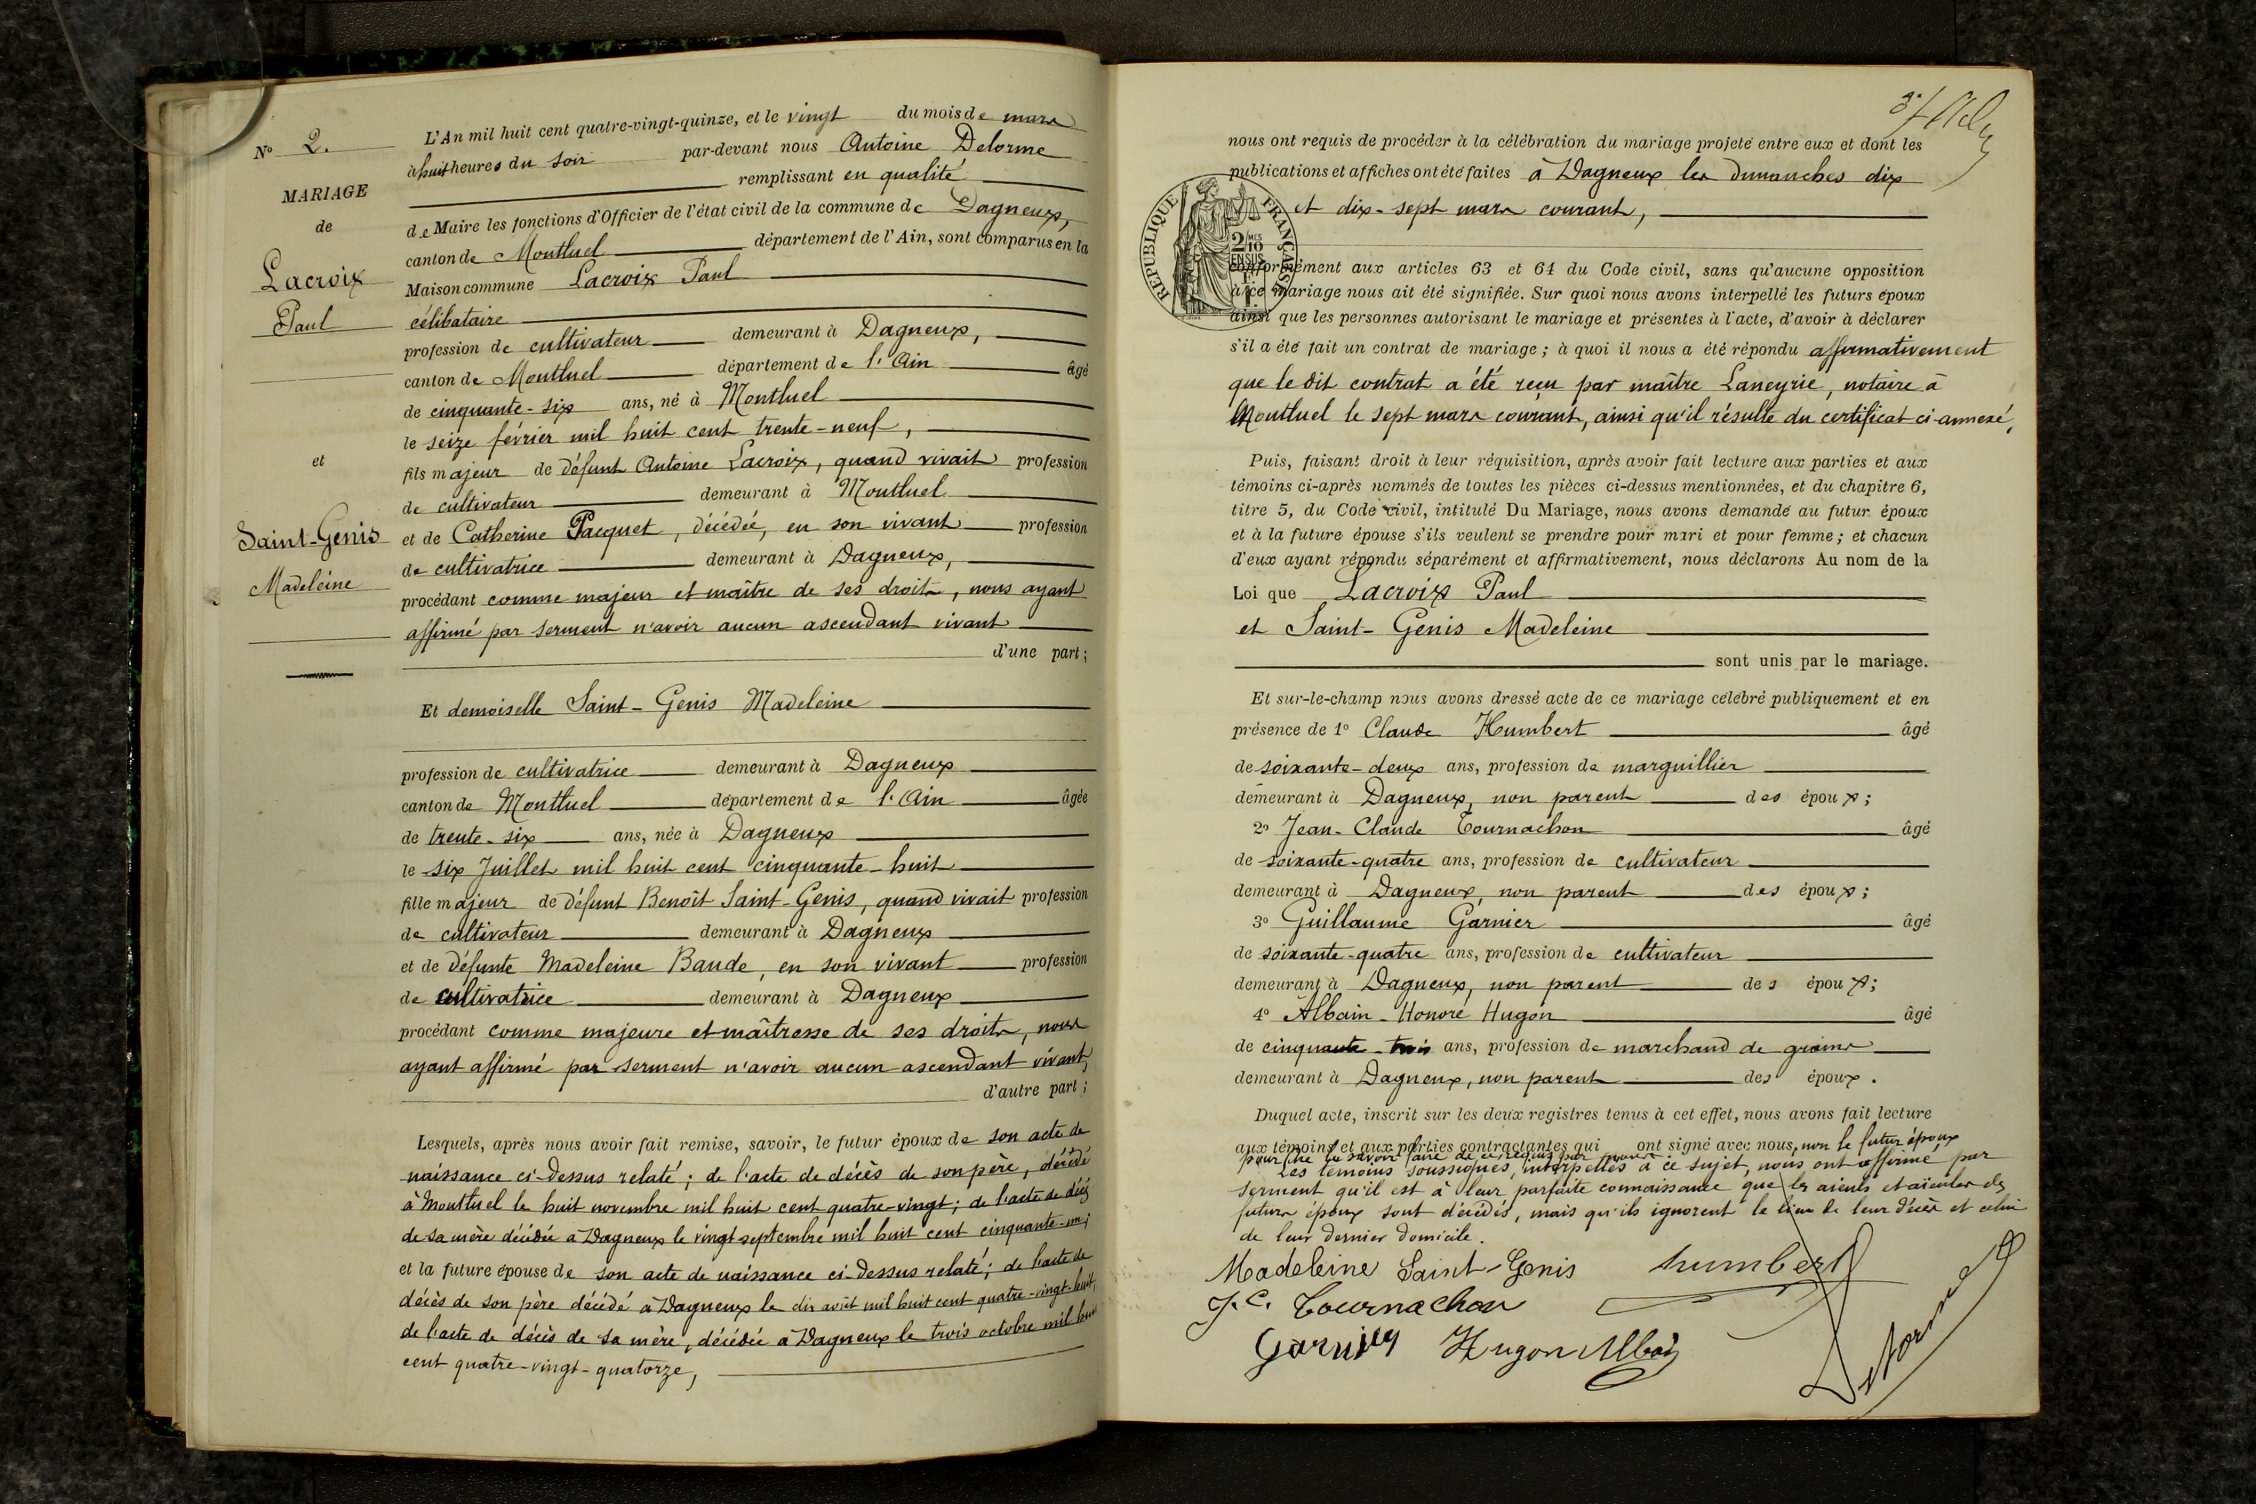 N° 2.
MARIAGE
de
Lacroix
Paul
et
Saint-Genis
Madeleine
L'An mil huit cent quatre-vingt-quinze, et le vingt du mois de mars
à huit heures du soir par-devant nous Antoine Delorme
remplissant en qualité
de Maire les fonctions d'Officier de l'état civil de la commune de Dagneux,
canton de Montluel département de l'Ain, sont comparus en la
Maison commune Lacroix Paul
célibataire
profession de cultivateur demeurant à Dagneux,
canton de Montluel département de l'Ain âgé
de cinquante-six ans, né à Montluel
le seize février mil huit cent trente-neuf,
fils majeur de défunt Antoine Lacroix, quand vivait profession
de cultivateur demeurant à Montluel
et de Catherine Pacquet, décédée, en son vivant profession
de cultivatrice demeurant à Dagneux,
procédant comme majeur et maître de ses droits, nous ayant
affirmé par serment n'avoir aucun ascendant vivant
d'une part;
Et demoiselle Saint-Genis Madeleine
profession de cultivatrice demeurant à Dagneux
canton de Montluel département de l'Ain âgée
de trente-six ans, née à Dagneux
le six Juillet mil huit cent cinquante-huit
fille majeur de défunt Benoît Saint-Genis, quand vivait profession
de cultivateur demeurant à Dagneux
et de défunte Madeleine Baude, en son vivant profession
de cultivatrice demeurant à Dagneux
procédant comme majeure et maîtresse de ses droits, nous
ayant affirmé par serment n'avoir aucun ascendant vivant,
d'autre part;
Lesquels, après nous avoir fait remise, savoir, le futur époux de son acte de
naissance ci-dessus relaté; de l'acte de décès de son père, décédé
à Montluel le huit novembre mil huit cent quatre-vingt; de l'acte de décès
de sa mère décédée à Dagneux le vingt septembre mil huit cent cinquante-un;
et la future épouse de son acte de naissance ci-dessus relaté; de l'acte de
décès de son père décédé à Dagneux le dix août mil huit cent quatre-vingt-huit,
de l'acte de décès de sa mère, décédée à Dagneux le trois octobre mil huit
cent quatre-vingt-quatorze,
nous ont requis de procéder à la célébration du mariage projeté entre eux et dont les
publications et affiches ont été faites à Dagneux les dimanches dix
et dix-sept mars courant,
RÉPUBLIQUE FRANÇAISE
2/10 MES
EN SUS
conformément aux articles 63 et 64 du Code civil, sans qu'aucune opposition
à ce mariage nous ait été signifiée. Sur quoi nous avons interpellé les futurs époux
ainsi que les personnes autorisant le mariage et présentes à l'acte, d'avoir à déclarer
s'il a été fait un contrat de mariage; à quoi il nous a été répondu affirmativement
que le dit contrat a été reçu par maître Laneyrie, notaire à
Montluel le sept mars courant, ainsi qu'il résulte du certificat ci-annexé,
Puis, faisant droit à leur réquisition, après avoir fait lecture aux parties et aux
témoins ci-après nommés de toutes les pièces ci-dessus mentionnées, et du chapitre 6,
titre 5, du Code civil, intitulé Du Mariage, nous avons demandé au futur époux
et à la future épouse s'ils veulent se prendre pour mari et pour femme; et chacun
d'eux ayant répondu séparément et affirmativement, nous déclarons Au nom de la
Loi que Lacroix Paul
et Saint-Genis Madeleine
sont unis par le mariage.
Et sur-le-champ nous avons dressé acte de ce mariage célébré publiquement et en
présence de 1° Claude Humbert âgé
de soixante-deux ans, profession de marguillier
demeurant à Dagneux, non parent des époux;
2° Jean-Claude Tournachon âgé
de soixante-quatre ans, profession de cultivateur
demeurant à Dagneux, non parent des époux;
3° Guillaume Garnier âgé
de soixante-quatre ans, profession de cultivateur
demeurant à Dagneux, non parent des époux;
4° Albain-Honoré Hugon âgé
de cinquante-trois ans, profession de marchand de grains
demeurant à Dagneux, non parent des époux.
Duquel acte, inscrit sur les deux registres tenus à cet effet, nous avons fait lecture
aux témoins et aux parties contractantes qui ont signé avec nous, non le futur époux
pour ne le savoir faire de ce requis par nous
Les témoins soussignés, interpellés à ce sujet, nous ont affirmé par
serment qu'il est à leur parfaite connaissance que les aïeuls et aïeules des
futurs époux sont décédés, mais qu'ils ignorent le lieu de leur décès et celui
de leur dernier domicile.
Madeleine Saint-Genis humbert
J. C. Tournachon
Garnier Hugon Albain
Delorme